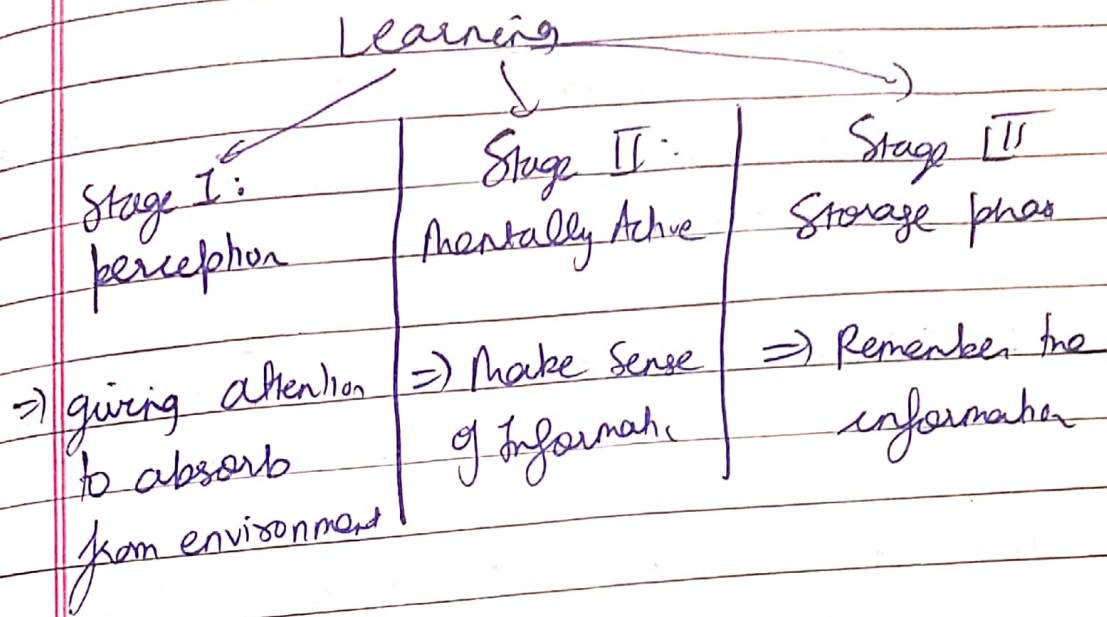 Learning
Stage I:
perception
⇒ giving attention
to absorb
from environment
Stage II:
Mentally Active
⇒ Make sense
of Informati
Stage III
Storage phas
⇒ Remember the
information